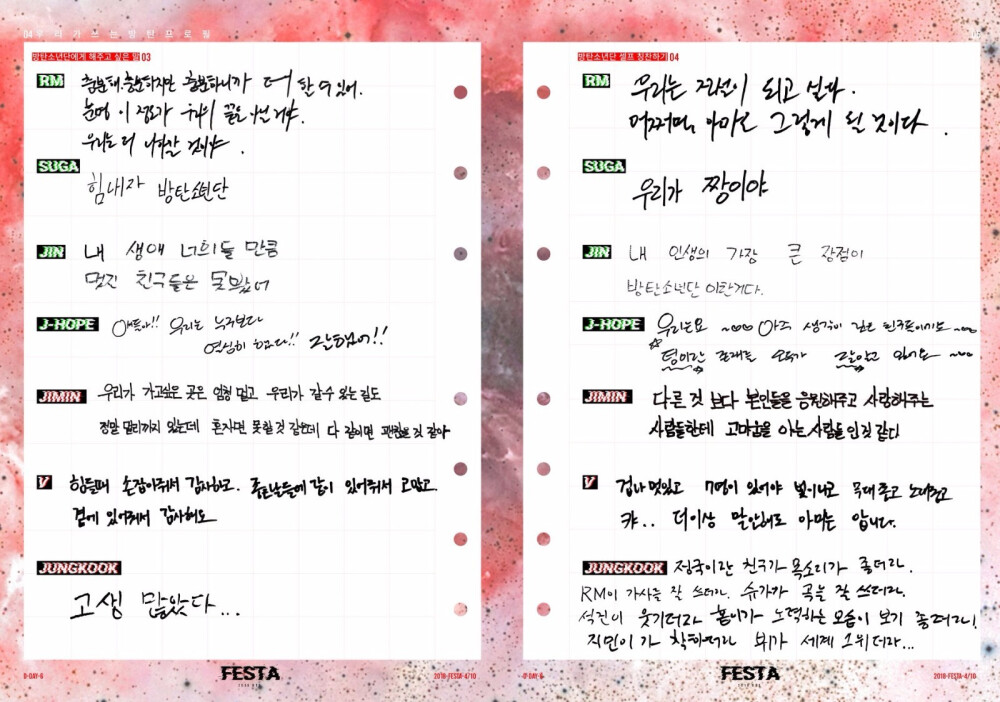 04 우리가 쓰는 방탄 프로필
방탄소년단에게 해주고 싶은 말 03
RM
충분해. 충분하지만 충분하니까 더 할 수 있어.
분명 이 정도가 우리 끝은 아닌 거야.
우리는 더 나아갈 것이야.
SUGA
힘내자 방탄소년단
JIN
내 생애 너희들 만큼
멋진 친구들은 못봤어
J-HOPE
얘들아!! 우리는 누구보다
열심히 했다!! 잘했어!!
JIMIN
우리가 가고싶은 곳은 엄청 멀고 우리가 갈수 있는 길도
정말 멀리까지 있는데 혼자면 못할 것 같은데 다 같이면 괜찮을 것 같아
V
힘들때 손잡아줘서 감사하고. 모든날들에 같이 있어줘서 고맙고.
곁에 있어줘서 감사해요
JUNGKOOK
고생 많았다...
D-DAY-6
FESTA
2018-FESTA-4/10
방탄소년단 셀프 칭찬하기 04
RM
우리는 전설이 되고 싶다.
어쩌면, 아마도 그렇게 될 것이다.
SUGA
우리가 짱이야
JIN
내 인생의 가장 큰 장점이
방탄소년단 이란거다.
J-HOPE
우리는요 ~ 아주 생각이 깊은 친구들이지요 ~
팀이란 존재를 잘알고 있어요 ~
JIMIN
다른 것 보다 본인들을 응원해주고 사랑해주는
사람들한테 고마움을 아는 사람들인 것 같다
V
겁나 멋있고 7명이 있어야 빛이나고 무대 좋고 노래좋고
캬.. 더이상 말안해도 아미는 압니다.
JUNGKOOK
정국이란 친구가 목소리가 좋더라.
RM이 가사를 잘 쓰더라. 슈가가 곡을 잘 쓰더라.
석진이 웃기더라 홉이가 노력하는 모습이 보기 좋더라!
지민이가 착하더라 뷔가 세계 1위더라...
D-DAY-6
FESTA
2018-FESTA-4/10